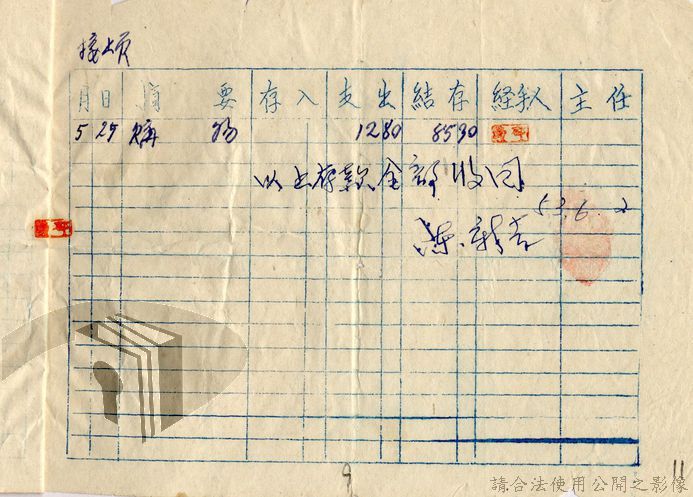 接上頁
月 日 摘 要 存入 支出 結存 経手人 主任
5 29 購 物 1280 8530
以上存款全部收回
53.6.2
陳新吉
9
11
請合法使用公開之影像